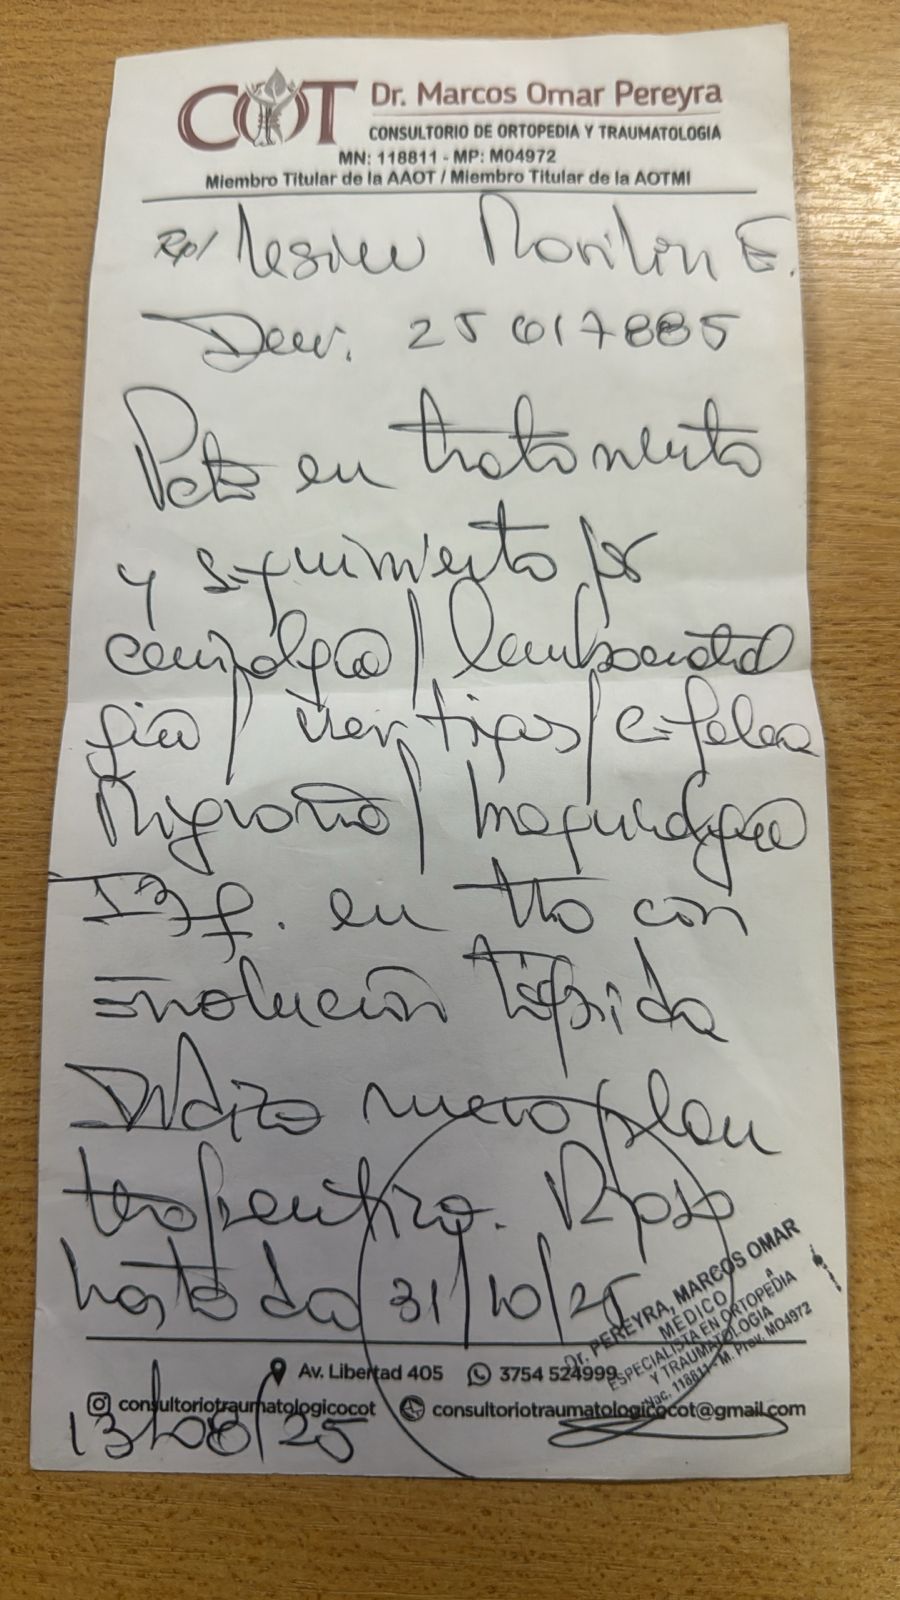 COT Dr. Marcos Omar Pereyra
CONSULTORIO DE ORTOPEDIA Y TRAUMATOLOGIA
MN: 118811 - MP: M04972
Miembro Titular de la AAOT / Miembro Titular de la AOTMI
Rp/ E.
25 617885
en tratamiento
y seguimiento por
cervicalgia / lumbociatal
gia / vertigos / cefalea
Migraña / Inguinalgia
Izq. en tto con
Evolución Tórpida
Indico nuevo plan
terapeutico. Rposo
hasta da 31/10/25
Dr. PEREYRA, MARCOS OMAR
MEDICO
ESPECIALISTA EN ORTOPEDIA
Y TRAUMATOLOGIA
Nac. 118811 - M. Prov. M04972
Av. Libertad 405 3754 524999
consultoriotraumatologicocot consultoriotraumatologicocot@gmail.com
13/08/25